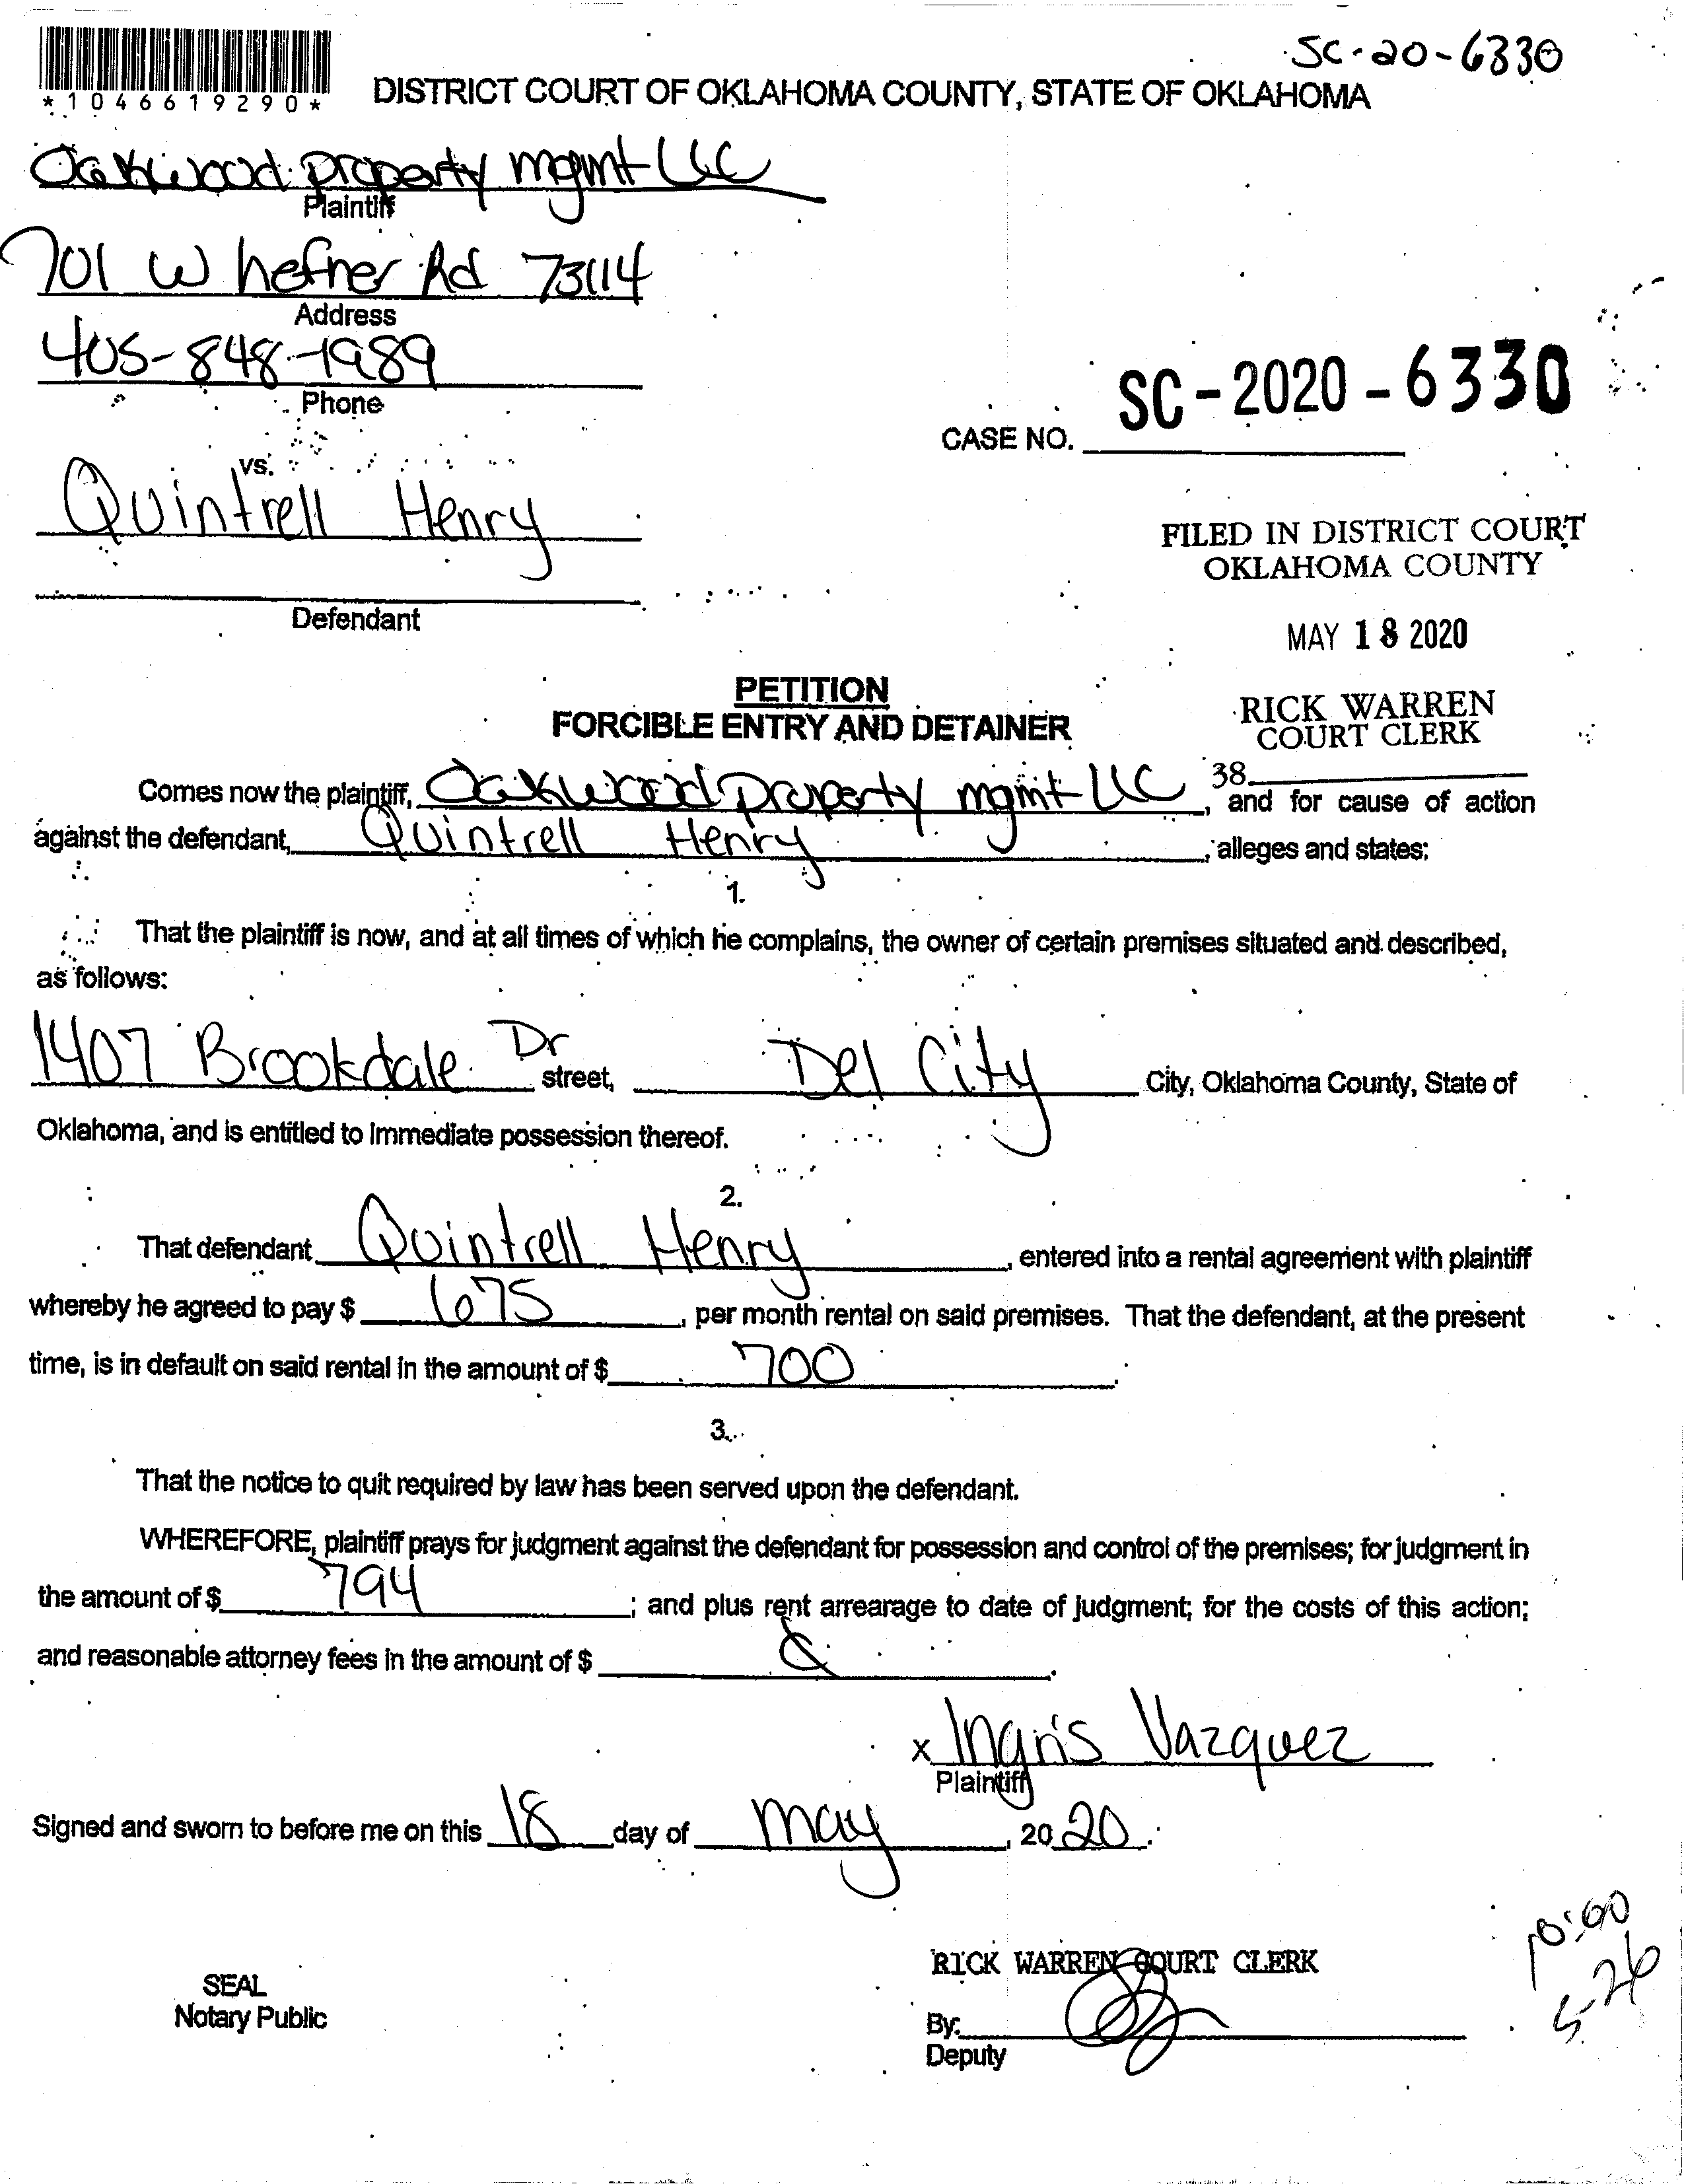 SC-20-6330
*1046619290*
DISTRICT COURT OF OKLAHOMA COUNTY, STATE OF OKLAHOMA
Oakwood property mgmt LLC
Plaintiff
701 W hefner Rd 73114
Address
405-848-1989
Phone
SC-2020-6330
CASE NO.
vs.
Quintrell Henry
FILED IN DISTRICT COURT
OKLAHOMA COUNTY
Defendant
MAY 18 2020
PETITION
FORCIBLE ENTRY AND DETAINER
RICK WARREN
COURT CLERK
38
Comes now the plaintiff, Oakwood property mgmt LLC, and for cause of action
against the defendant, Quintrell Henry, alleges and states:
1.
That the plaintiff is now, and at all times of which he complains, the owner of certain premises situated and described,
as follows:
1407 Brookdale Dr street, Del City City, Oklahoma County, State of
Oklahoma, and is entitled to immediate possession thereof.
2.
That defendant Quintrell Henry, entered into a rental agreement with plaintiff
whereby he agreed to pay $ 675, per month rental on said premises. That the defendant, at the present
time, is in default on said rental in the amount of $ 700.
3.
That the notice to quit required by law has been served upon the defendant.
WHEREFORE, plaintiff prays for judgment against the defendant for possession and control of the premises; for judgment in
the amount of $ 794; and plus rent arrearage to date of judgment; for the costs of this action;
and reasonable attorney fees in the amount of $
x Ingris Vazquez
Plaintiff
Signed and sworn to before me on this 18 day of may, 20 20.
10:00
5-26
RICK WARREN COURT CLERK
SEAL
Notary Public
By:
Deputy